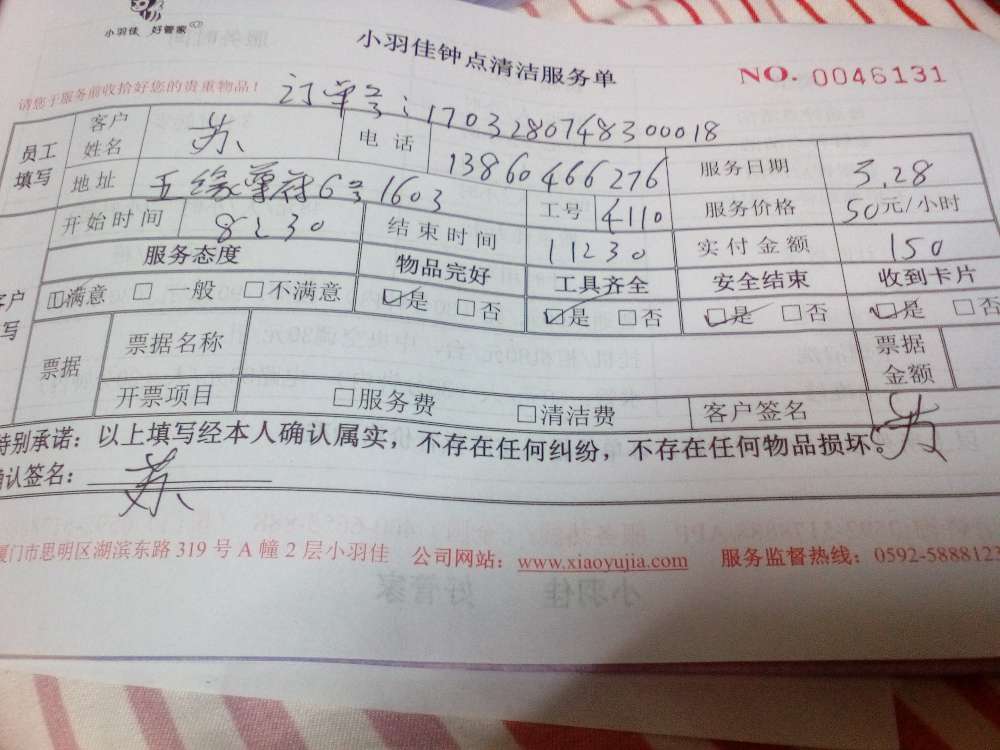 小羽佳 好管家
小羽佳钟点清洁服务单
NO. 0046131
请您于服务前收拾好您的贵重物品!
订单号:1703280748300018
员工填写 客户姓名 苏 电话 13860466276 服务日期 3.28
地址 五缘尊府6号1603 工号 4110 服务价格 50元/小时
开始时间 8:30 结束时间 11:30 实付金额 150
客户 写 服务态度 物品完好 工具齐全 安全结束 收到卡片
☑满意 □ 一般 □不满意 ☑是 □否 ☑是 □否 ☑是 □否 ☑是 □否
票据 票据名称 票据金额
开票项目 □服务费 □清洁费 客户签名 苏
特别承诺:以上填写经本人确认属实,不存在任何纠纷,不存在任何物品损坏。
确认签名: 苏
厦门市思明区湖滨东路 319 号 A 幢 2 层小羽佳 公司网站:www.xiaoyujia.com 服务监督热线:0592-5888123
小羽佳 好管家